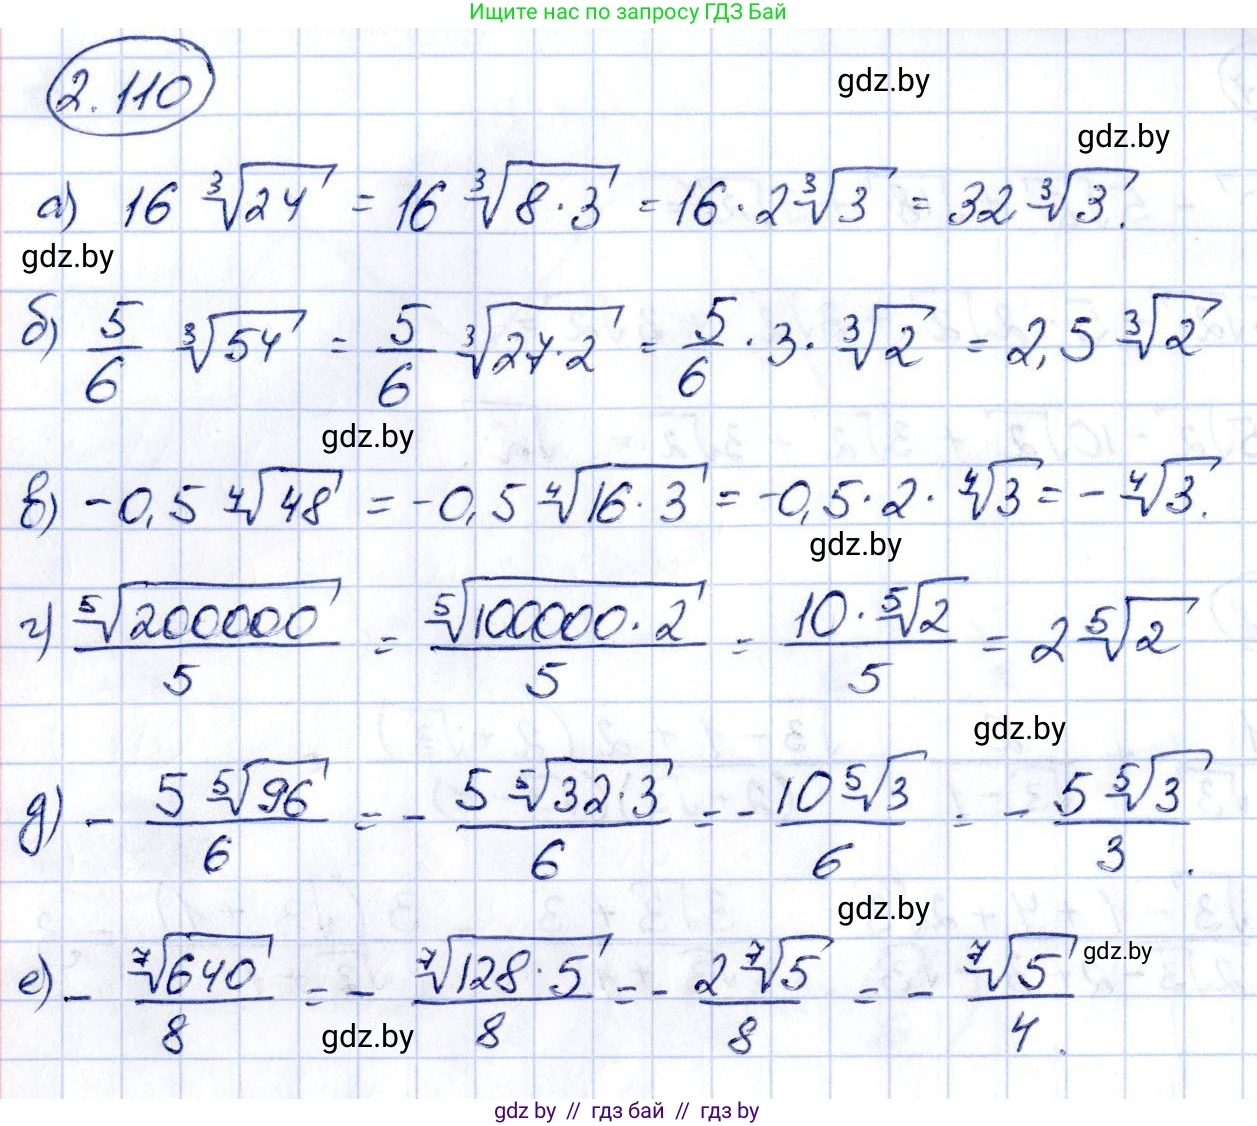 Ищите нас по запросу ГДЗ Бай
2.110
gdz.by
gdz.by
а) 16 ∛24 = 16 ∛(8·3) = 16·2∛3 = 32 ∛3.
gdz.by
б) 5/6 ∛54 = 5/6 ∛(27·2) = 5/6 · 3 · ∛2 = 2,5 ∛2
gdz.by
в) -0,5 ∜48 = -0,5 ∜(16·3) = -0,5·2·∜3 = -∜3.
gdz.by
г) ⁵√200000/5 = ⁵√(100000·2)/5 = 10·⁵√2/5 = 2 ⁵√2
gdz.by
д) - 5 ⁵√96/6 = - 5 ⁵√(32·3)/6 = - 10 ⁵√3/6 = - 5 ⁵√3/3.
gdz.by
е) - ⁷√640/8 = - ⁷√(128·5)/8 = - 2 ⁷√5/8 = - ⁷√5/4.
gdz.by
gdz.by
gdz by // гдз бай // гдз by